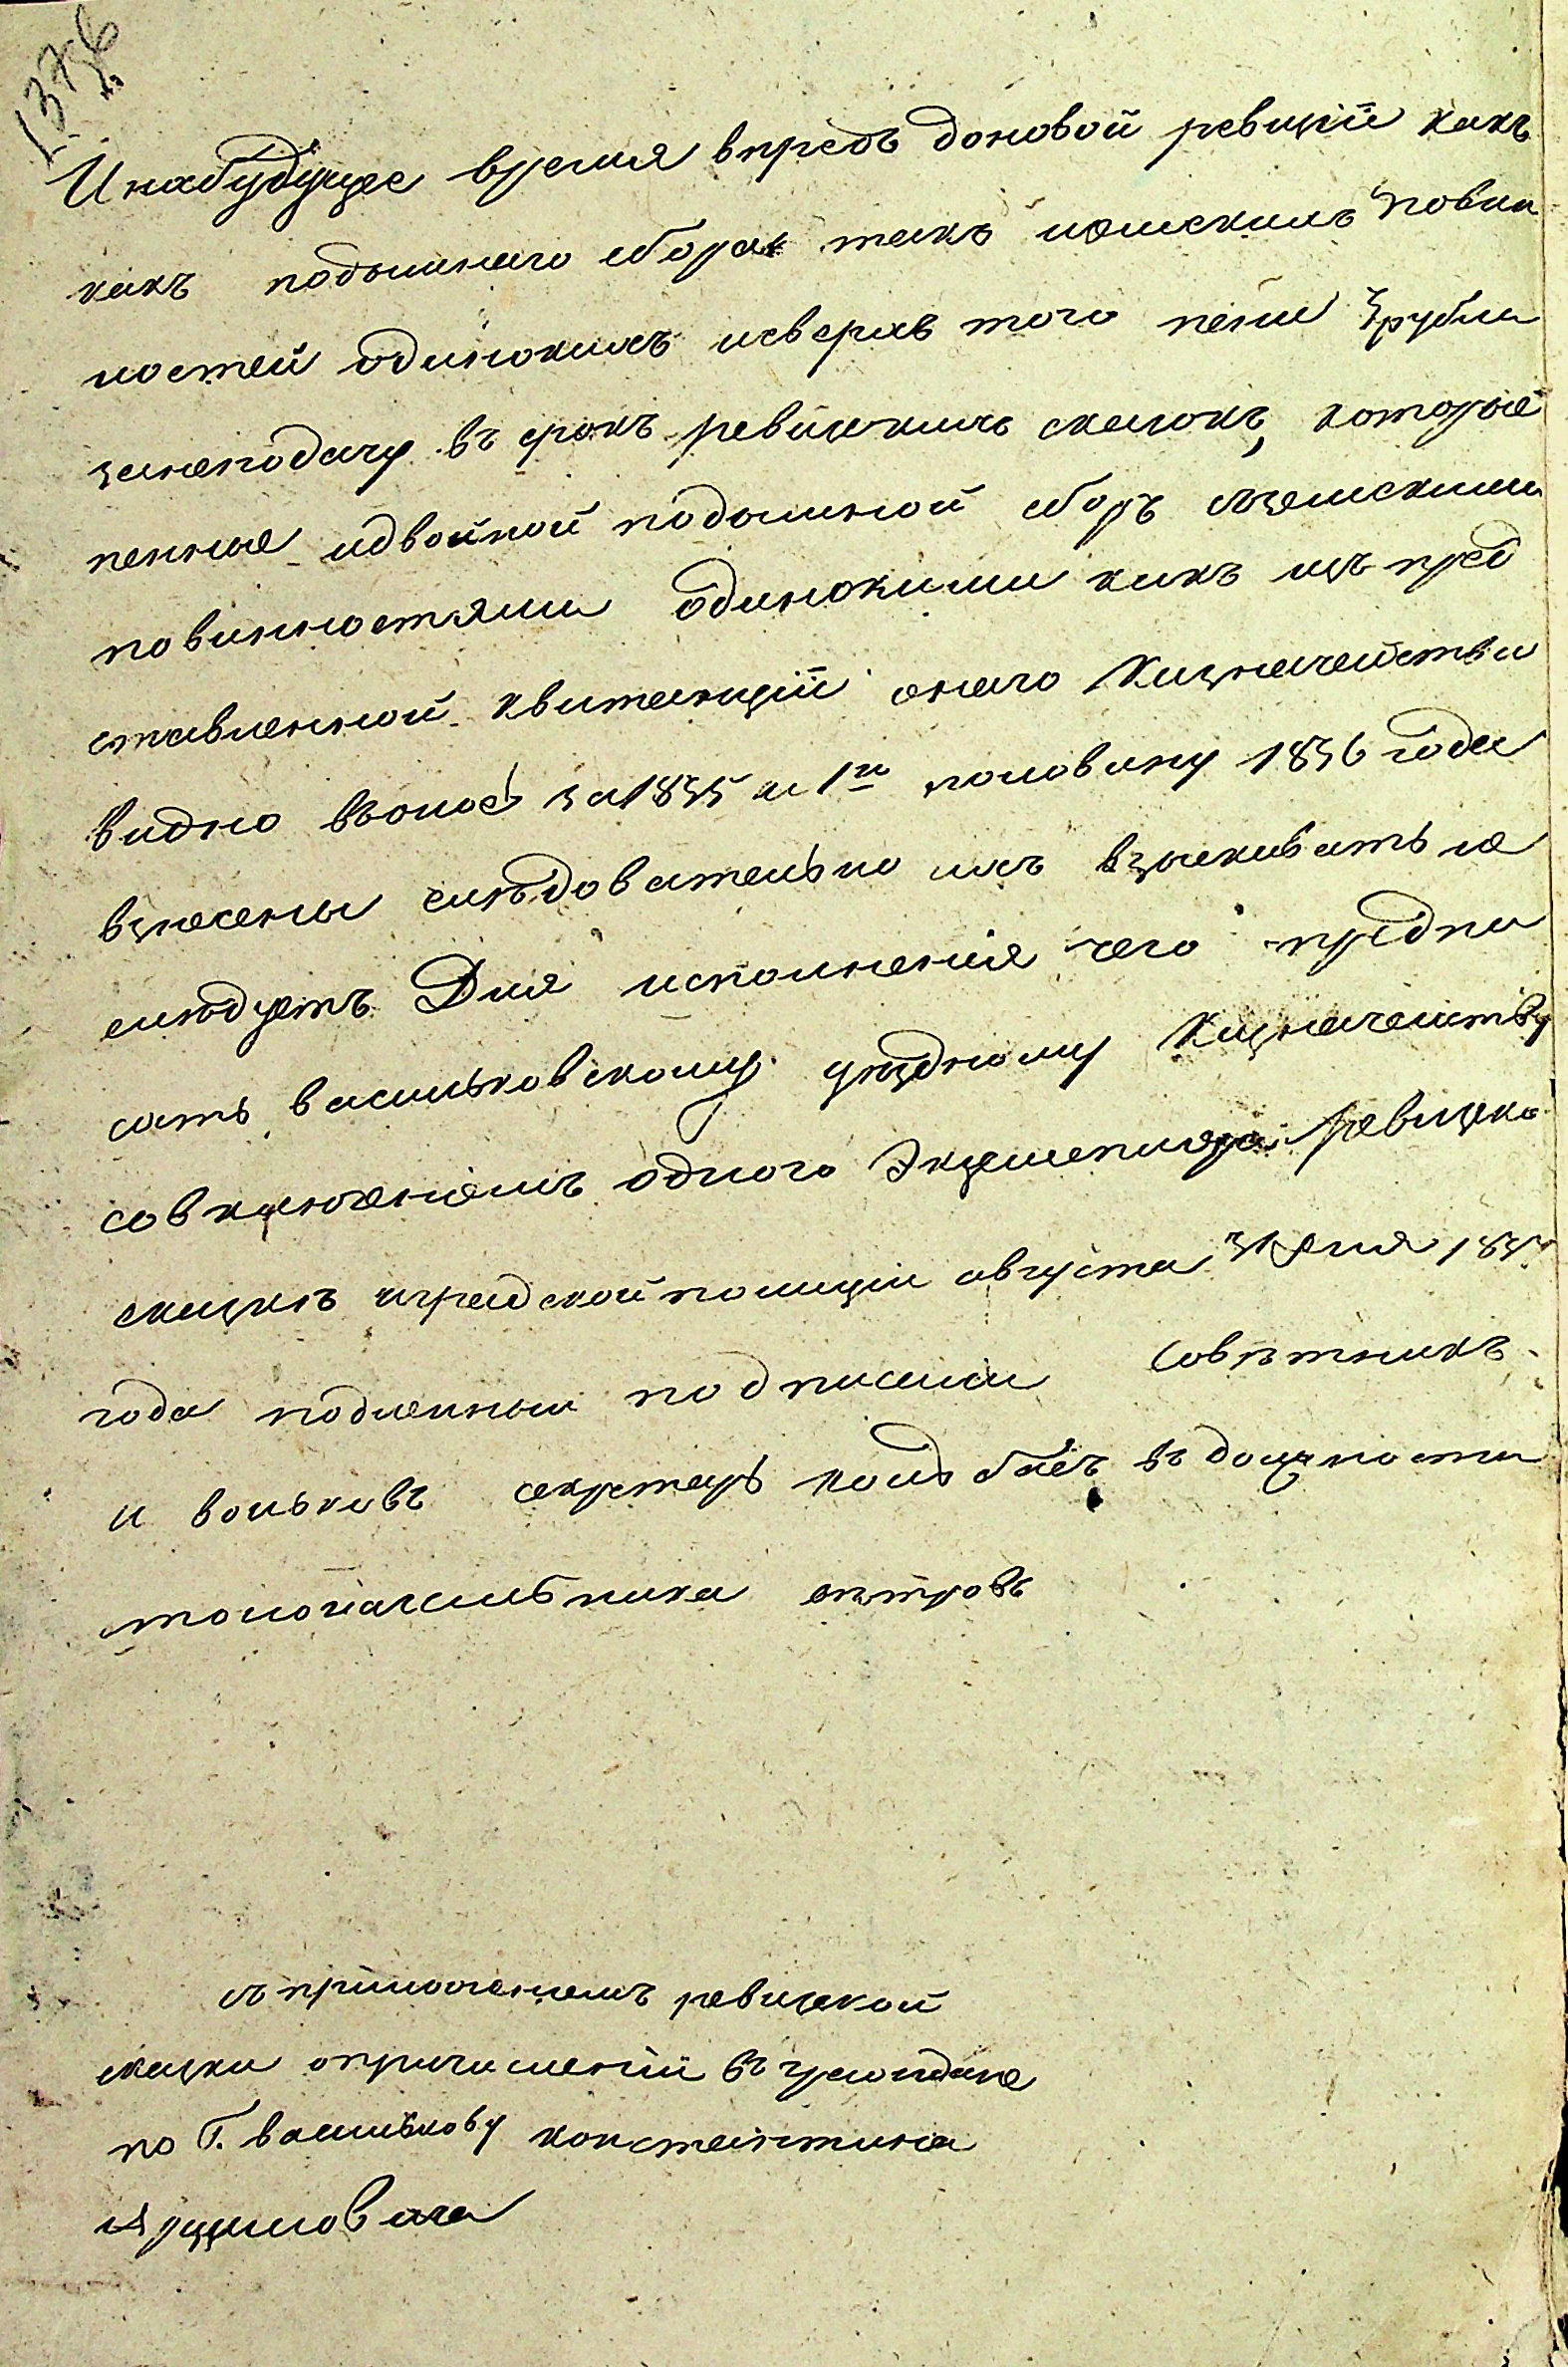 И набудущее время впредь доновой ревизіи какъ
какъ подымнаго сбора такъ иземскихъ повин
ностей одинокихъ исверхъ того пени 3 рубли
занеподачу въ срокъ ревизскихъ сказокъ, которые
пенные идвойной подымной сборъ сземскими
повинностями одинокими какъ изъ пред
ставленной квитанціи онаго Казначейства
видно взносъ за 1835 и 1ю половину 1836 года
взнесены слѣдовательно ихъ взыскивать не
слѣдуетъ Для исполненія чего предпи
сать васильковскому уѣздному Казначейству
совключеніемъ одного Экземпляра ревизско
сказкѣ иградской полиціи августа дня
года подленный подписали Совѣтникъ
и вольковъ секретарь въ должности
столоначальника
сприложеніемъ ревизской
сказки опричисленіи въ граждане
по Г. василькову константина